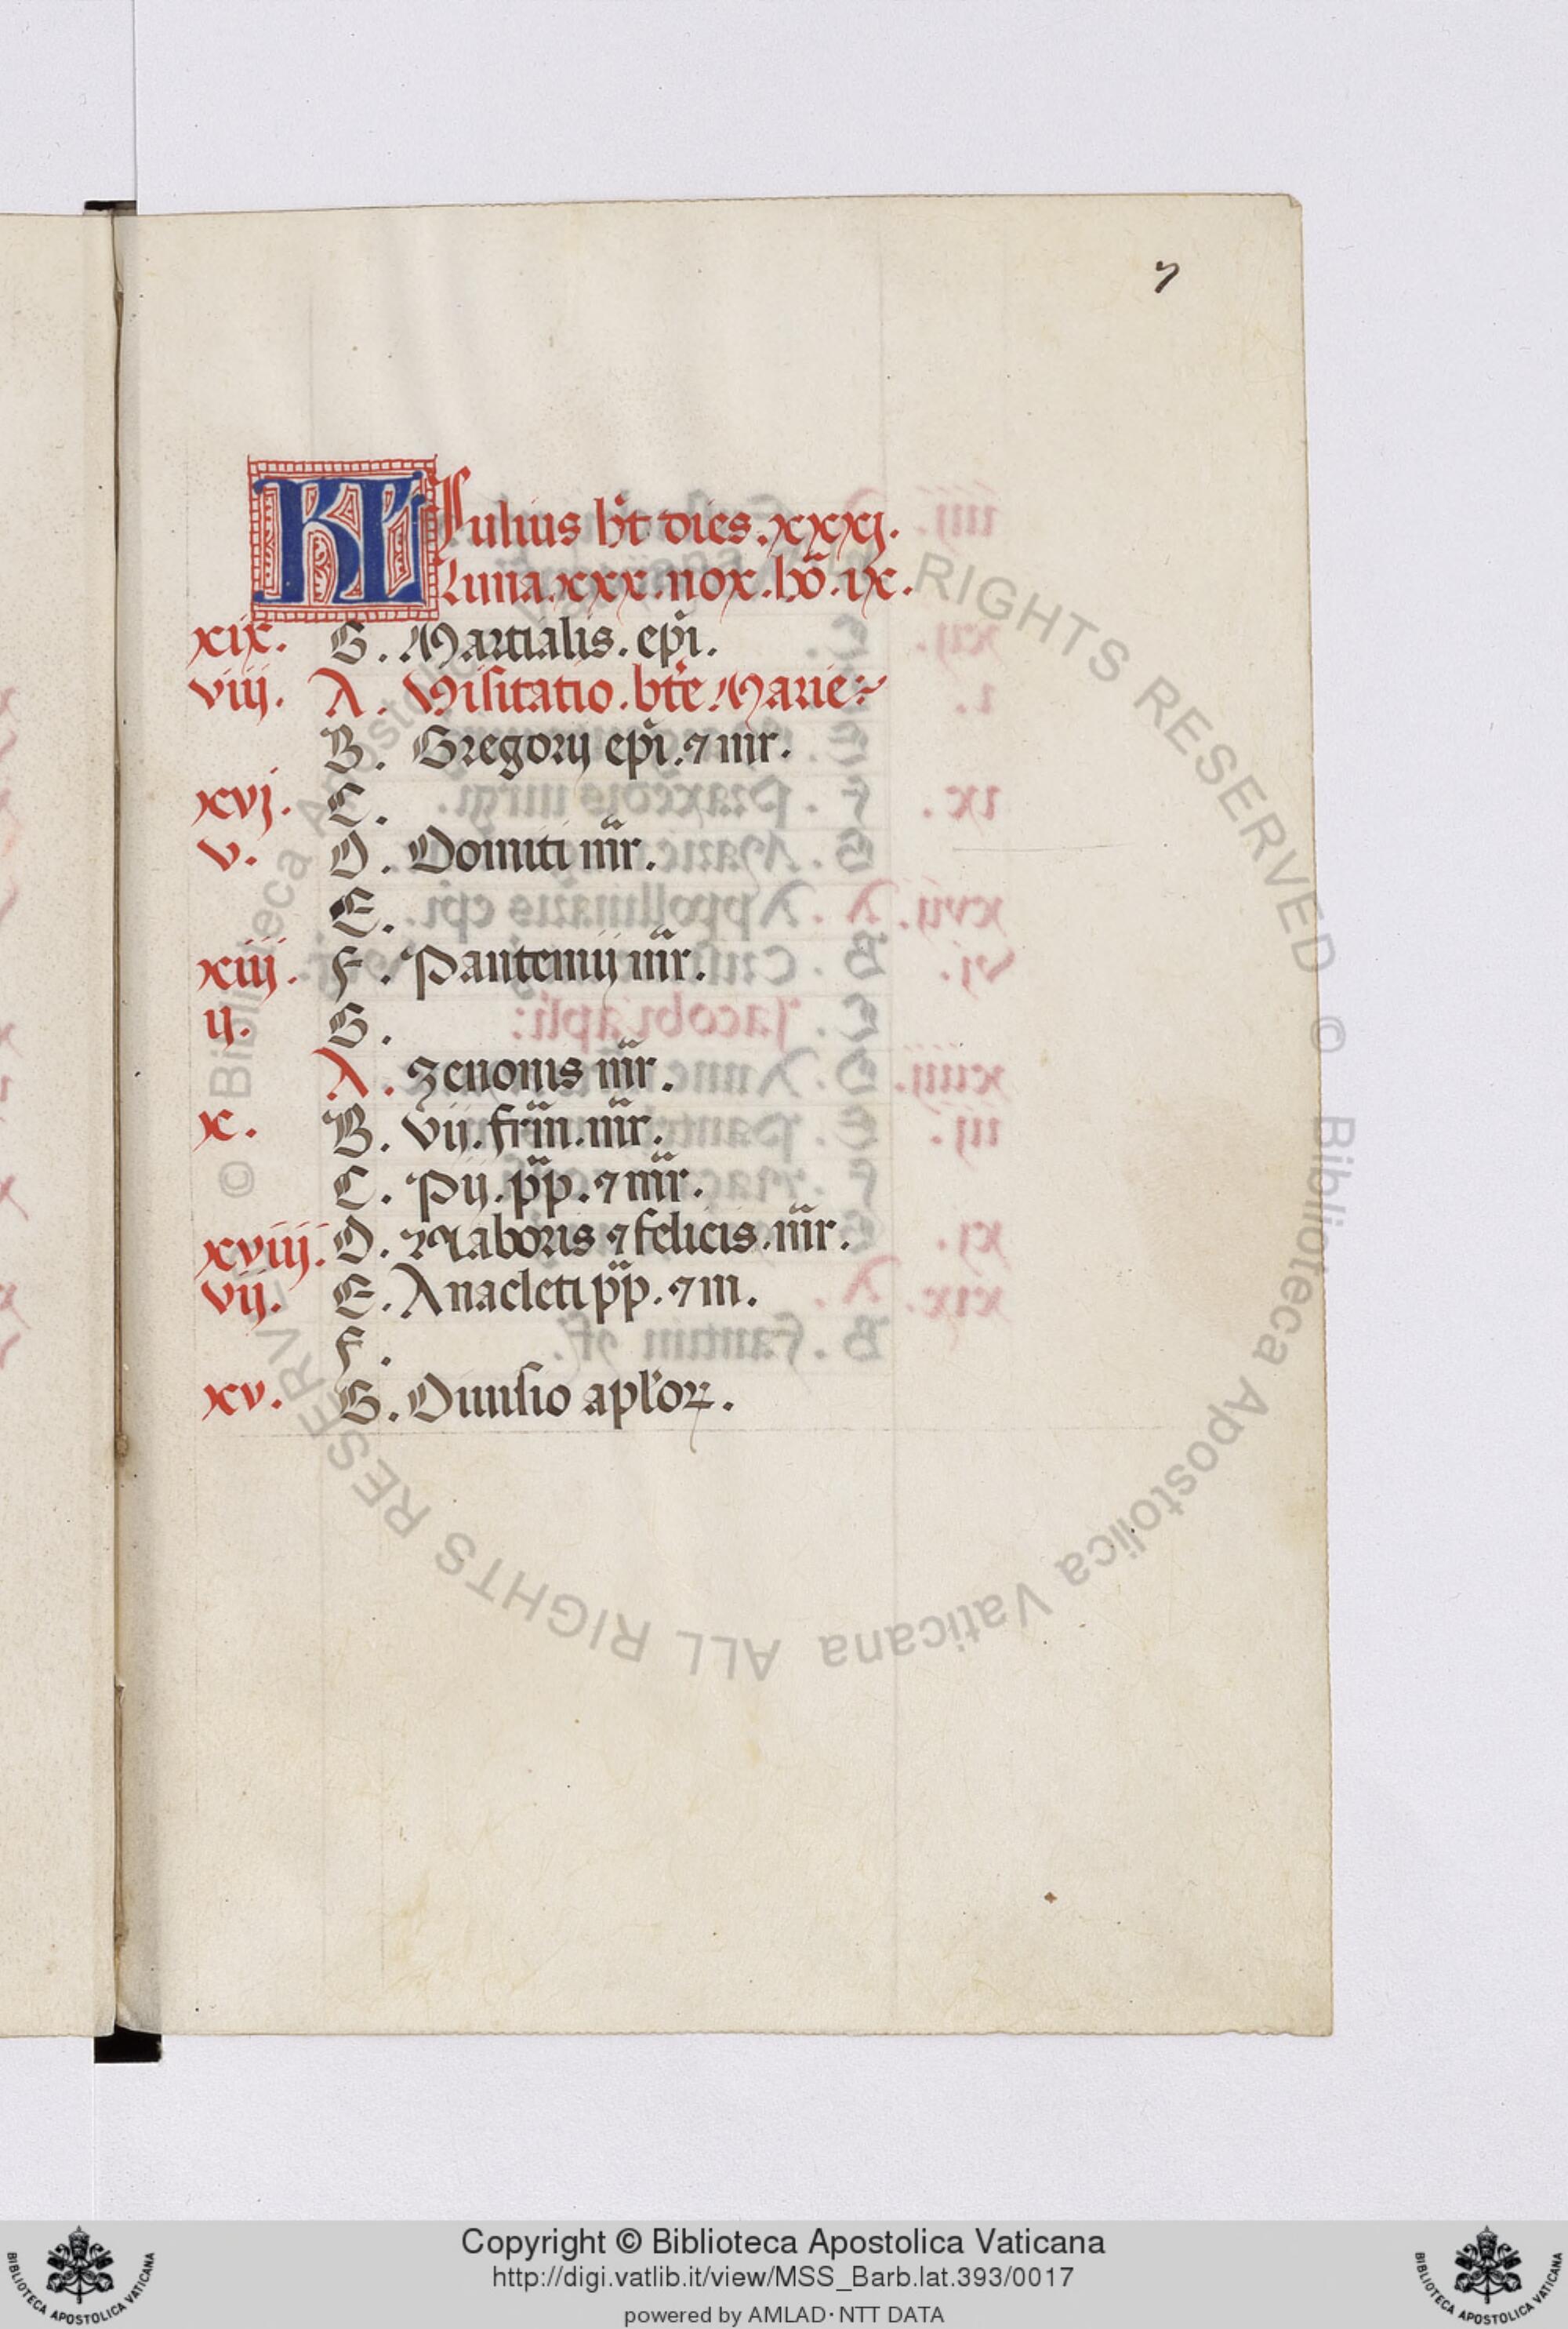 7
KL Iulius ht dies .xxxj.
luna .xxx. nox. ho. ix.
xix. G. Martialis. epi.
viij. A. Visitatio. bte Marie
B. Gregorij epi. ⁊ mr.
xvj. C.
v. D. Domiti mr.
E.
xiij. F. Pantemij mr.
ij. G.
A. Zenonis mr.
x. B. Vij. frm. mr.
C. Pij. pp. ⁊ mr.
xviij. D. Naboris ⁊ felicis. mr.
vij. E. Anacleti pp. ⁊ m.
F.
xv. G. Diuisio aplʼoꝝ.
© Biblioteca Apostolica Vaticana ALL RIGHTS RESERVED © Biblioteca Apostolica Vaticana ALL RIGHTS RESERVED
Copyright © Biblioteca Apostolica Vaticana
http://digi.vatlib.it/view/MSS_Barb.lat.393/0017
powered by AMLAD·NTT DATA
BIBLIOTECA APOSTOLICA VATICANA
BIBLIOTECA APOSTOLICA VATICANA